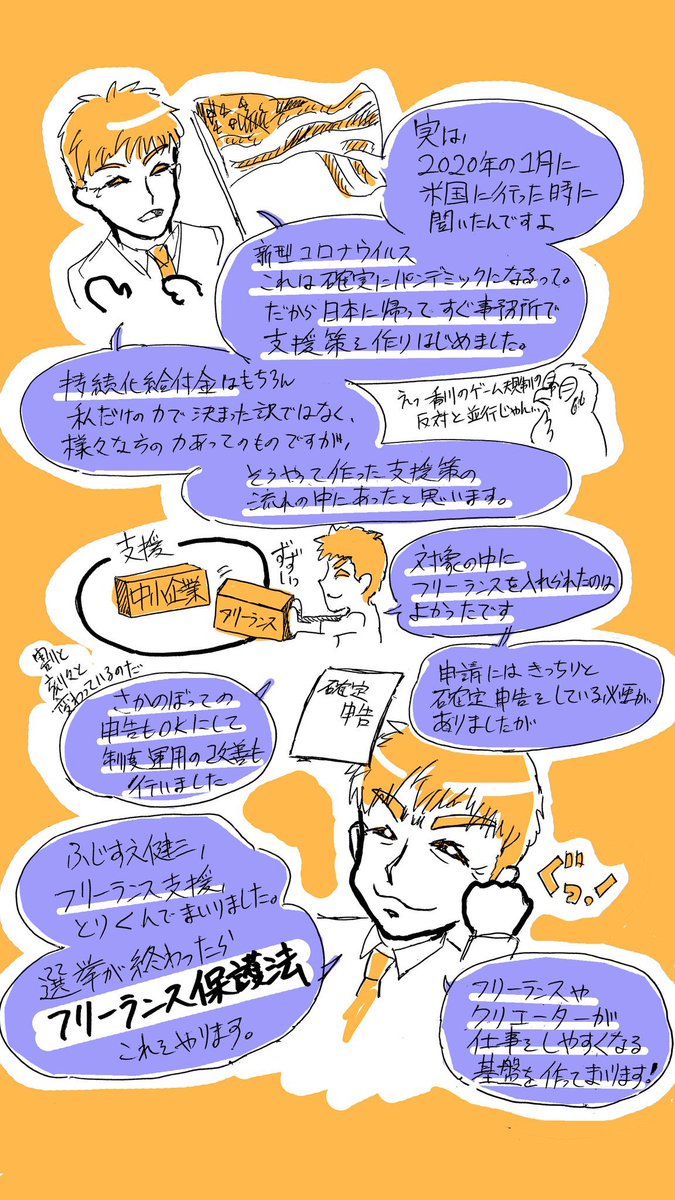 実は、
2020年の1月に
米国に行った時に
聞いたんですよ
新型コロナウイルス
これは確実にパンデミックになるって。
だから日本に帰ってすぐ事務所で
支援策を作りはじめました。
持続化給付金はもちろん
私だけの力で決まった訳ではなく、
様々な方の力あってのものですが、
えっ香川のゲーム規制の
反対と並行じゃん…
そうやって作った支援策の
流れの中にあったと思います。
支援
中小企業
フリーランス
ずずいっ
対象の中に
フリーランスを入れられたのは
よかったです
申請にはきっちりと
確定申告をしている必要が
ありましたが
確定
申告
割と
刻々と
変わっているのだ
さかのぼっての
申告もOKにして
制度運用の改善も
行いました
ぐっ!
ふじすえ健三、
フリーランス支援
とりくんでまいりました。
選挙が終わったら
フリーランス保護法
これをやります。
フリーランスや
クリエーターが
仕事をしやすくなる
基盤を作ってまいります!